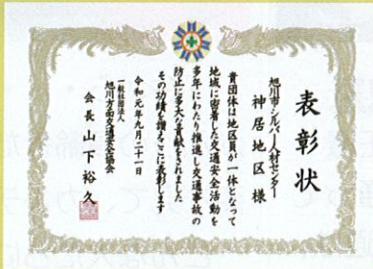 表彰状
旭川市シルバー人材センター
神居地区様
貴団体は地区員が一体となって
地域に密着した交通安全活動を
多年にわたり推進し交通事故の
防止に多大な貢献をされました
その功績を讃えここに表彰します
令和元年九月二十一日
一般社団法人
旭川方面交通安全協会
会長山下裕久